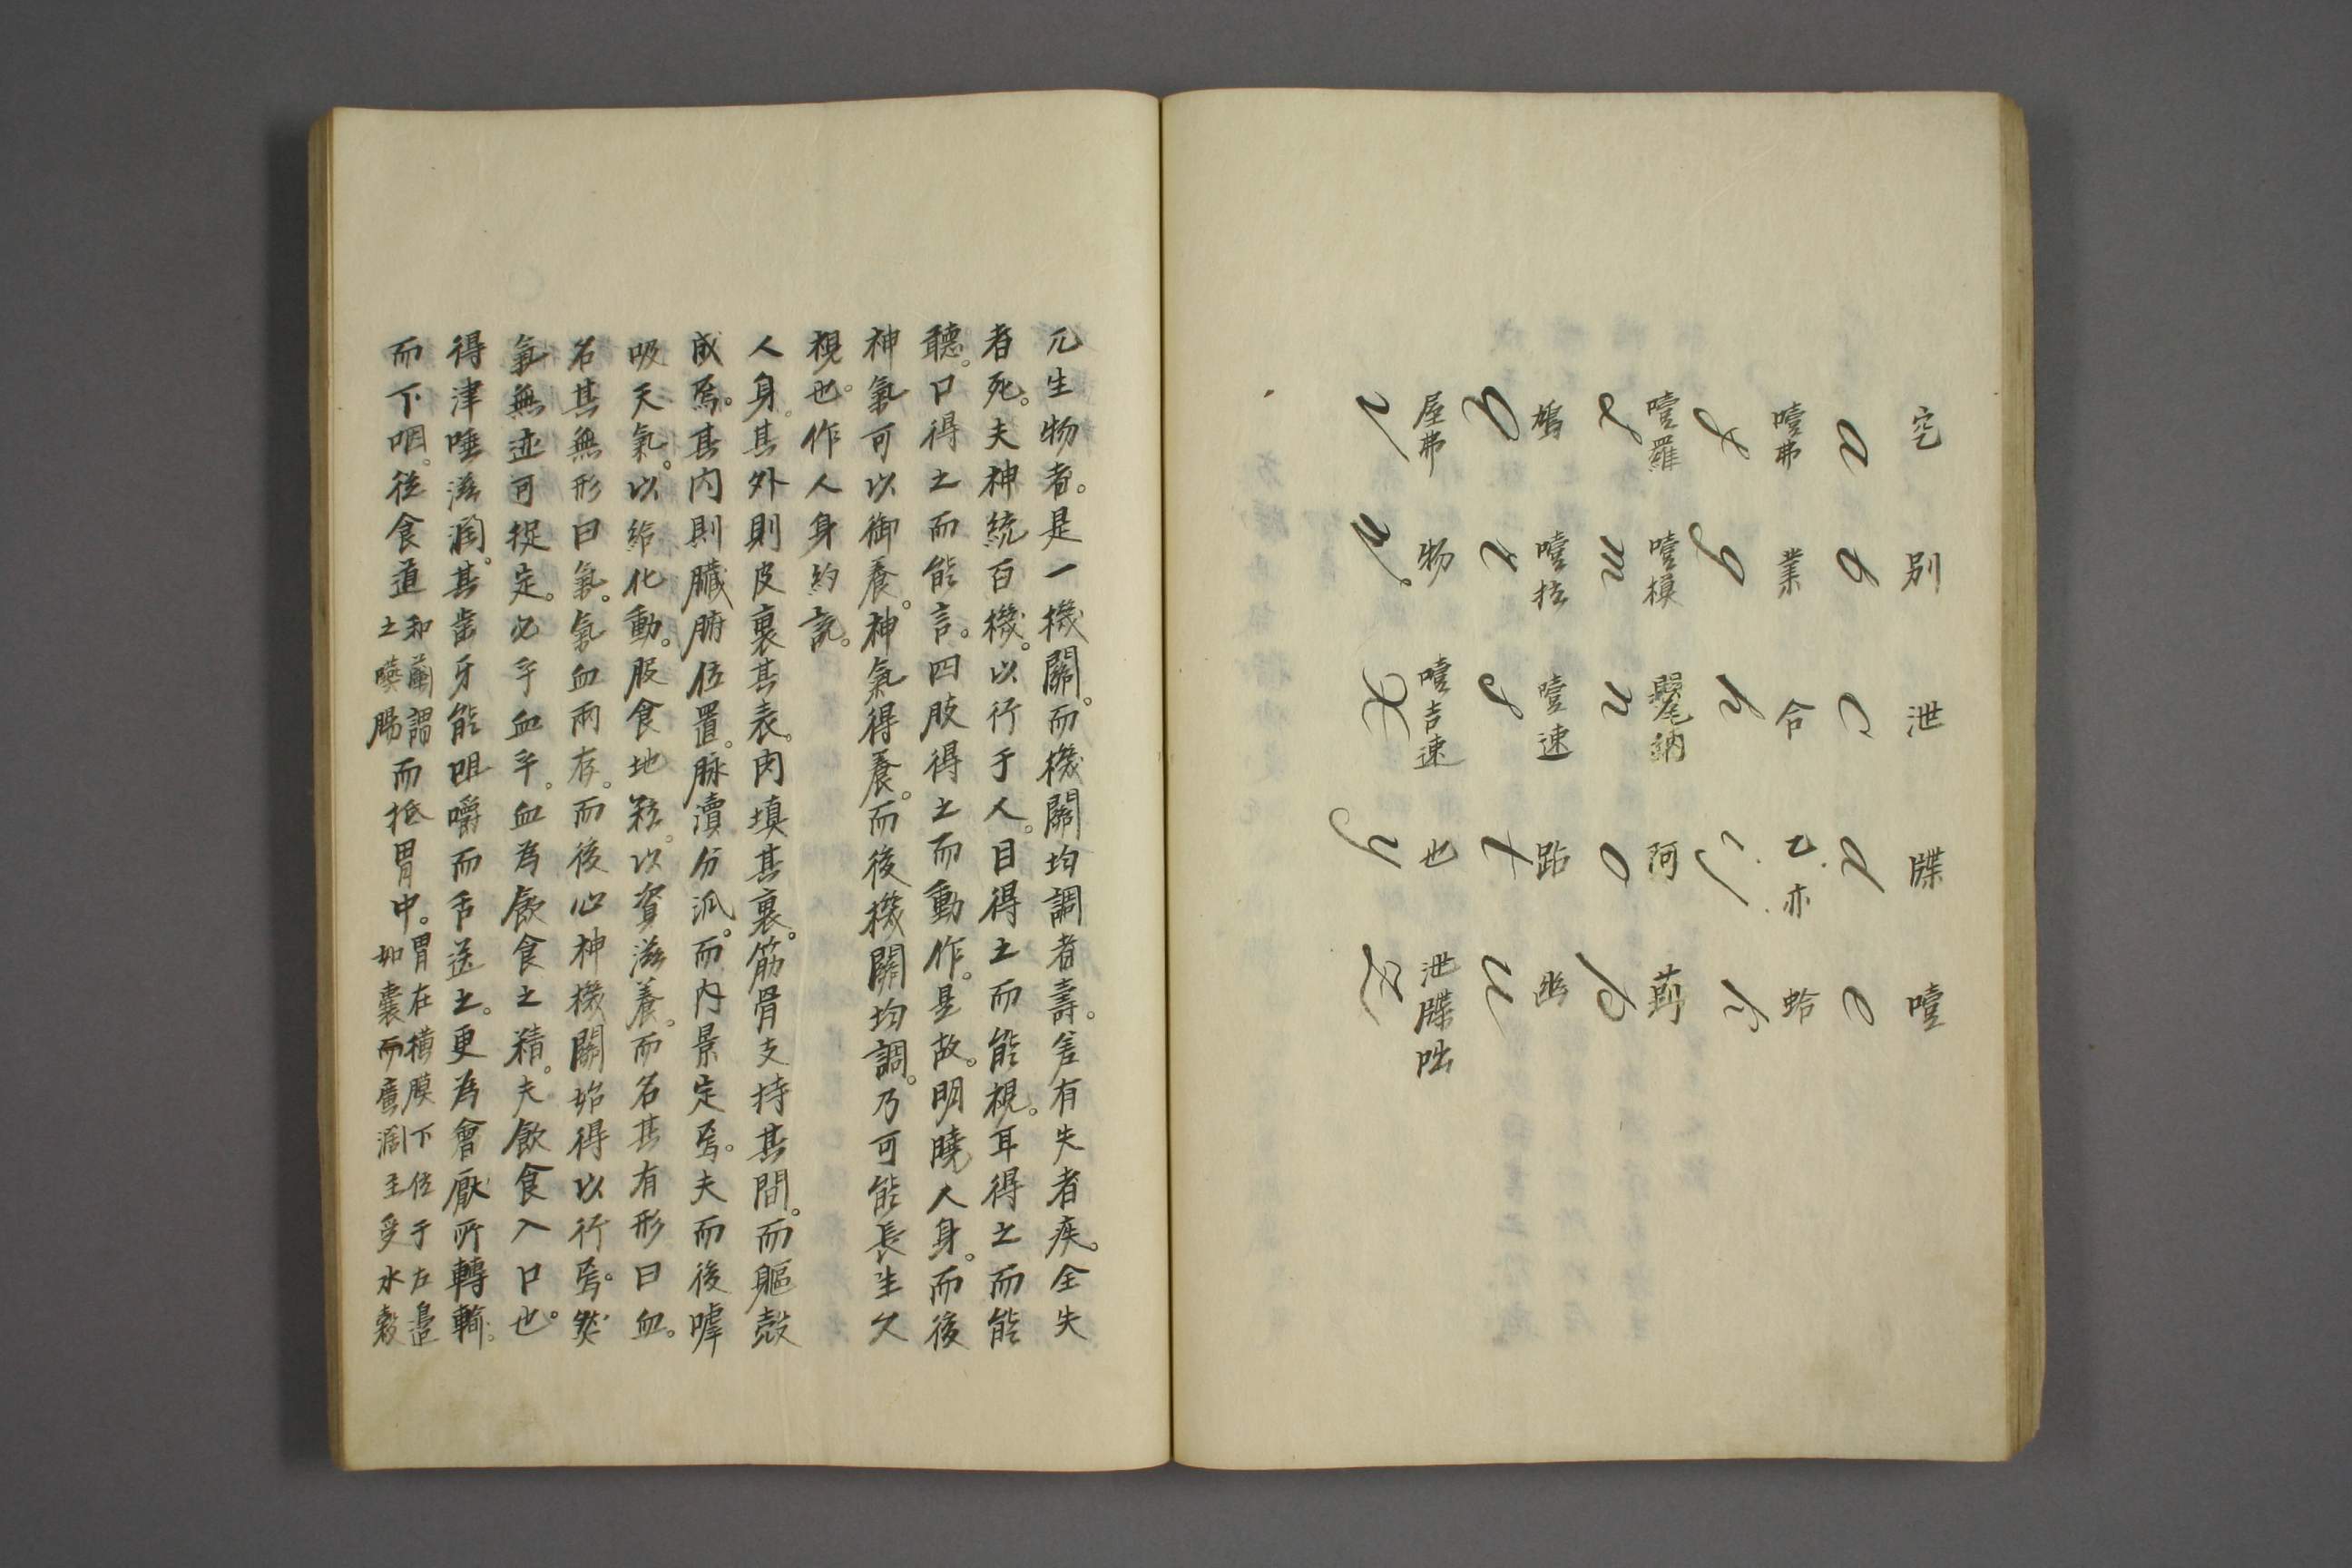 空 別 泄 牒 噎
a b c d e
噎弗 業 合 乙亦 蛤
f g h ij k
噎羅 噎模 納 阿
l m n o p
鳩 噎拉 噎速 跕 幽
q r s t u
屋弗 物 噎吉速 也 泄牒咄
v w x y z
凡生物者。是一機關。而機關均調者壽。差有失者疾。全失
者死。夫神統百機。以行于人。目得之而能視。耳得之而能
聽。口得之而能言。四肢得之而動作。是故。明曉人身。而後
神氣可以御養。神氣得養。而後機關均調。乃可能長生久
視也。作人身約説。
人身。其外則皮裹其表。肉填其裏。筋骨支持其間。而軀殼
成焉。其内則臓腑位置。脉瀆分派。而内景定焉。夫而後嘑
吸天氣。以給化動。服食地粒。以資滋養。而名其有形曰血。
名其無形曰氣。氣血兩存。而後心神機關始得以行焉。然
氣無迹可捉定。必乎血乎。血為飲食之精。夫飲食入口也。
得津唾滋潤。其齒牙能咀嚼而舌送之。更為會厭所轉輸。
而下咽。從食道和蘭謂之嚥腸而抵胃中。胃在横膜下位于左邊如囊而廣濶主受水穀